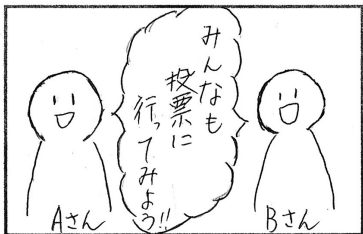 みんなも
投票に
行ってみよう!!
Aさん
Bさん